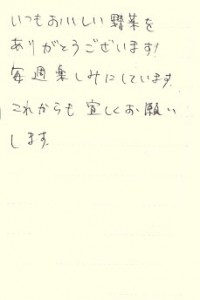 いつもおいしい野菜を
ありがとうございます!
毎週楽しみにしています.
これからも宜しくお願い
します.